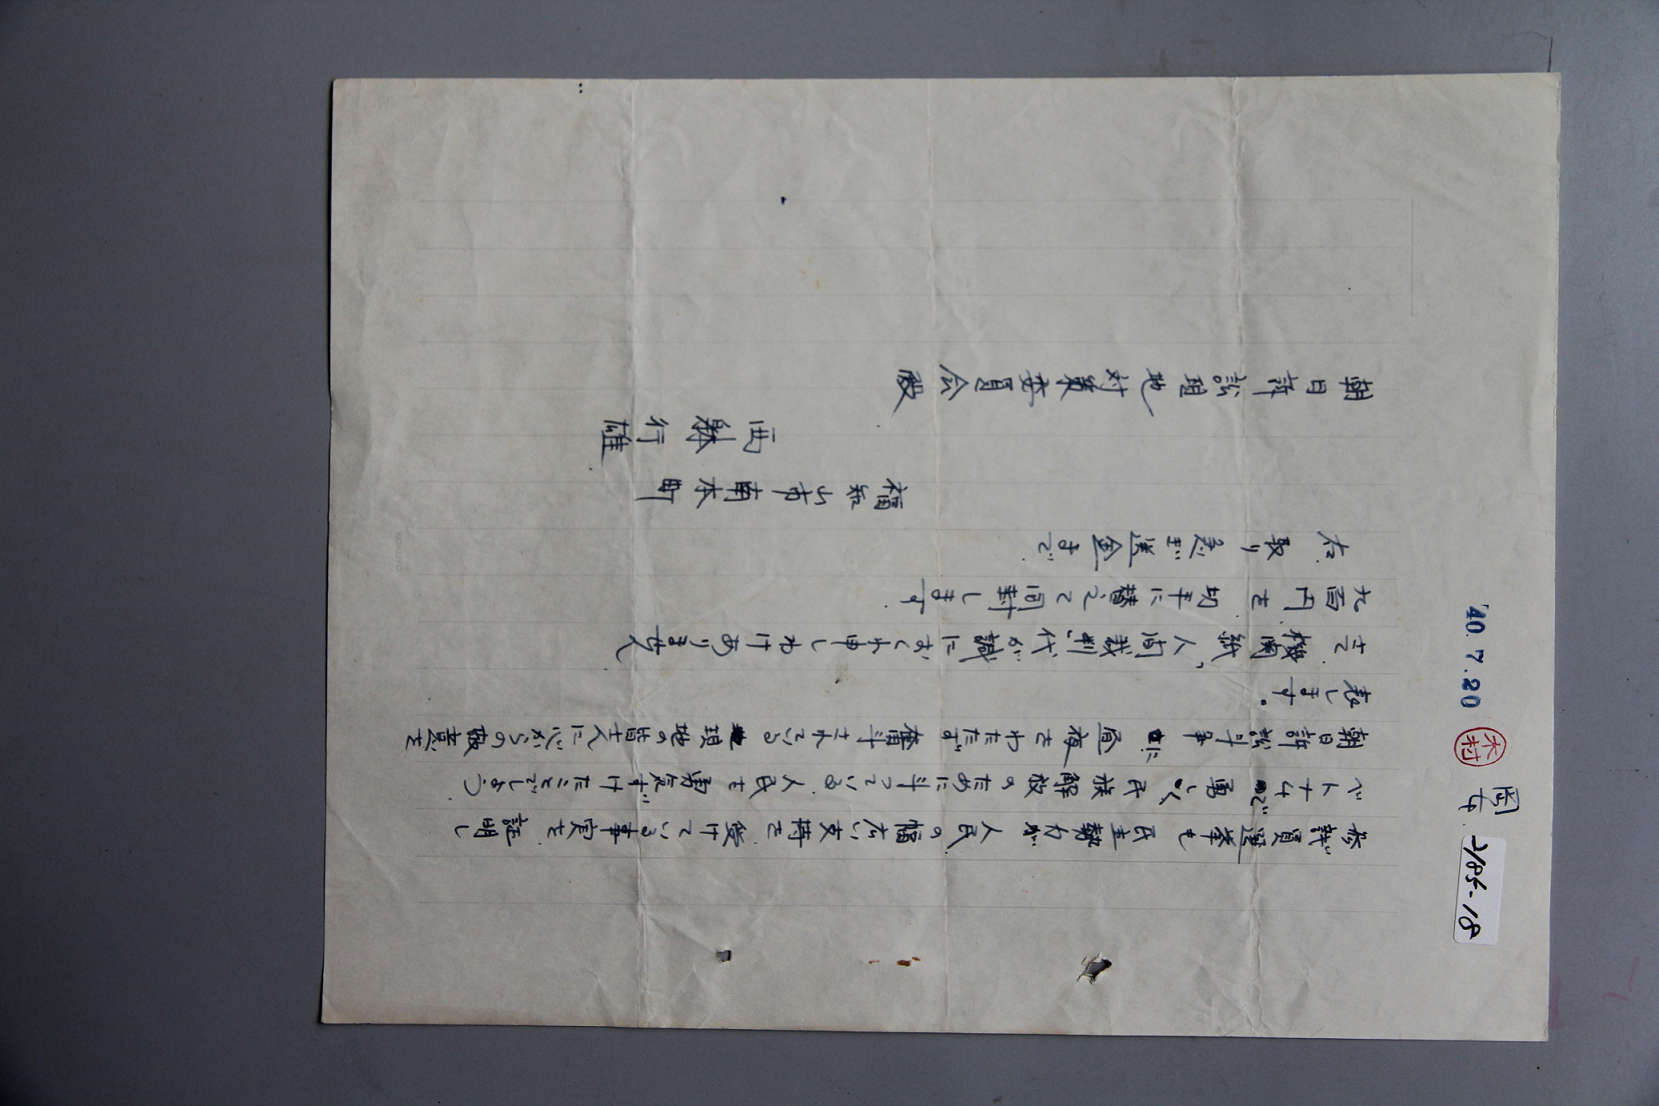 岡本
'40.7.20
木村
2185-18
参議員選挙も民主勢力が人民の幅広い支持を受けている事実を証明し
ベトナムで勇しく民族解放のために斗っている人民を勇気ずけたことでしょう
朝日訴訟斗争に昼夜をわたたず奮斗されている現地の皆さんに心からの敬意を
表します。
さて機関紙、人間裁判代が誠におくれ申しわけありません
九百円を切手に替えて同封します
右取り急ぎ送金まで
福知山市南本町
西縣行雄
朝日訴訟現地対策委員会殿